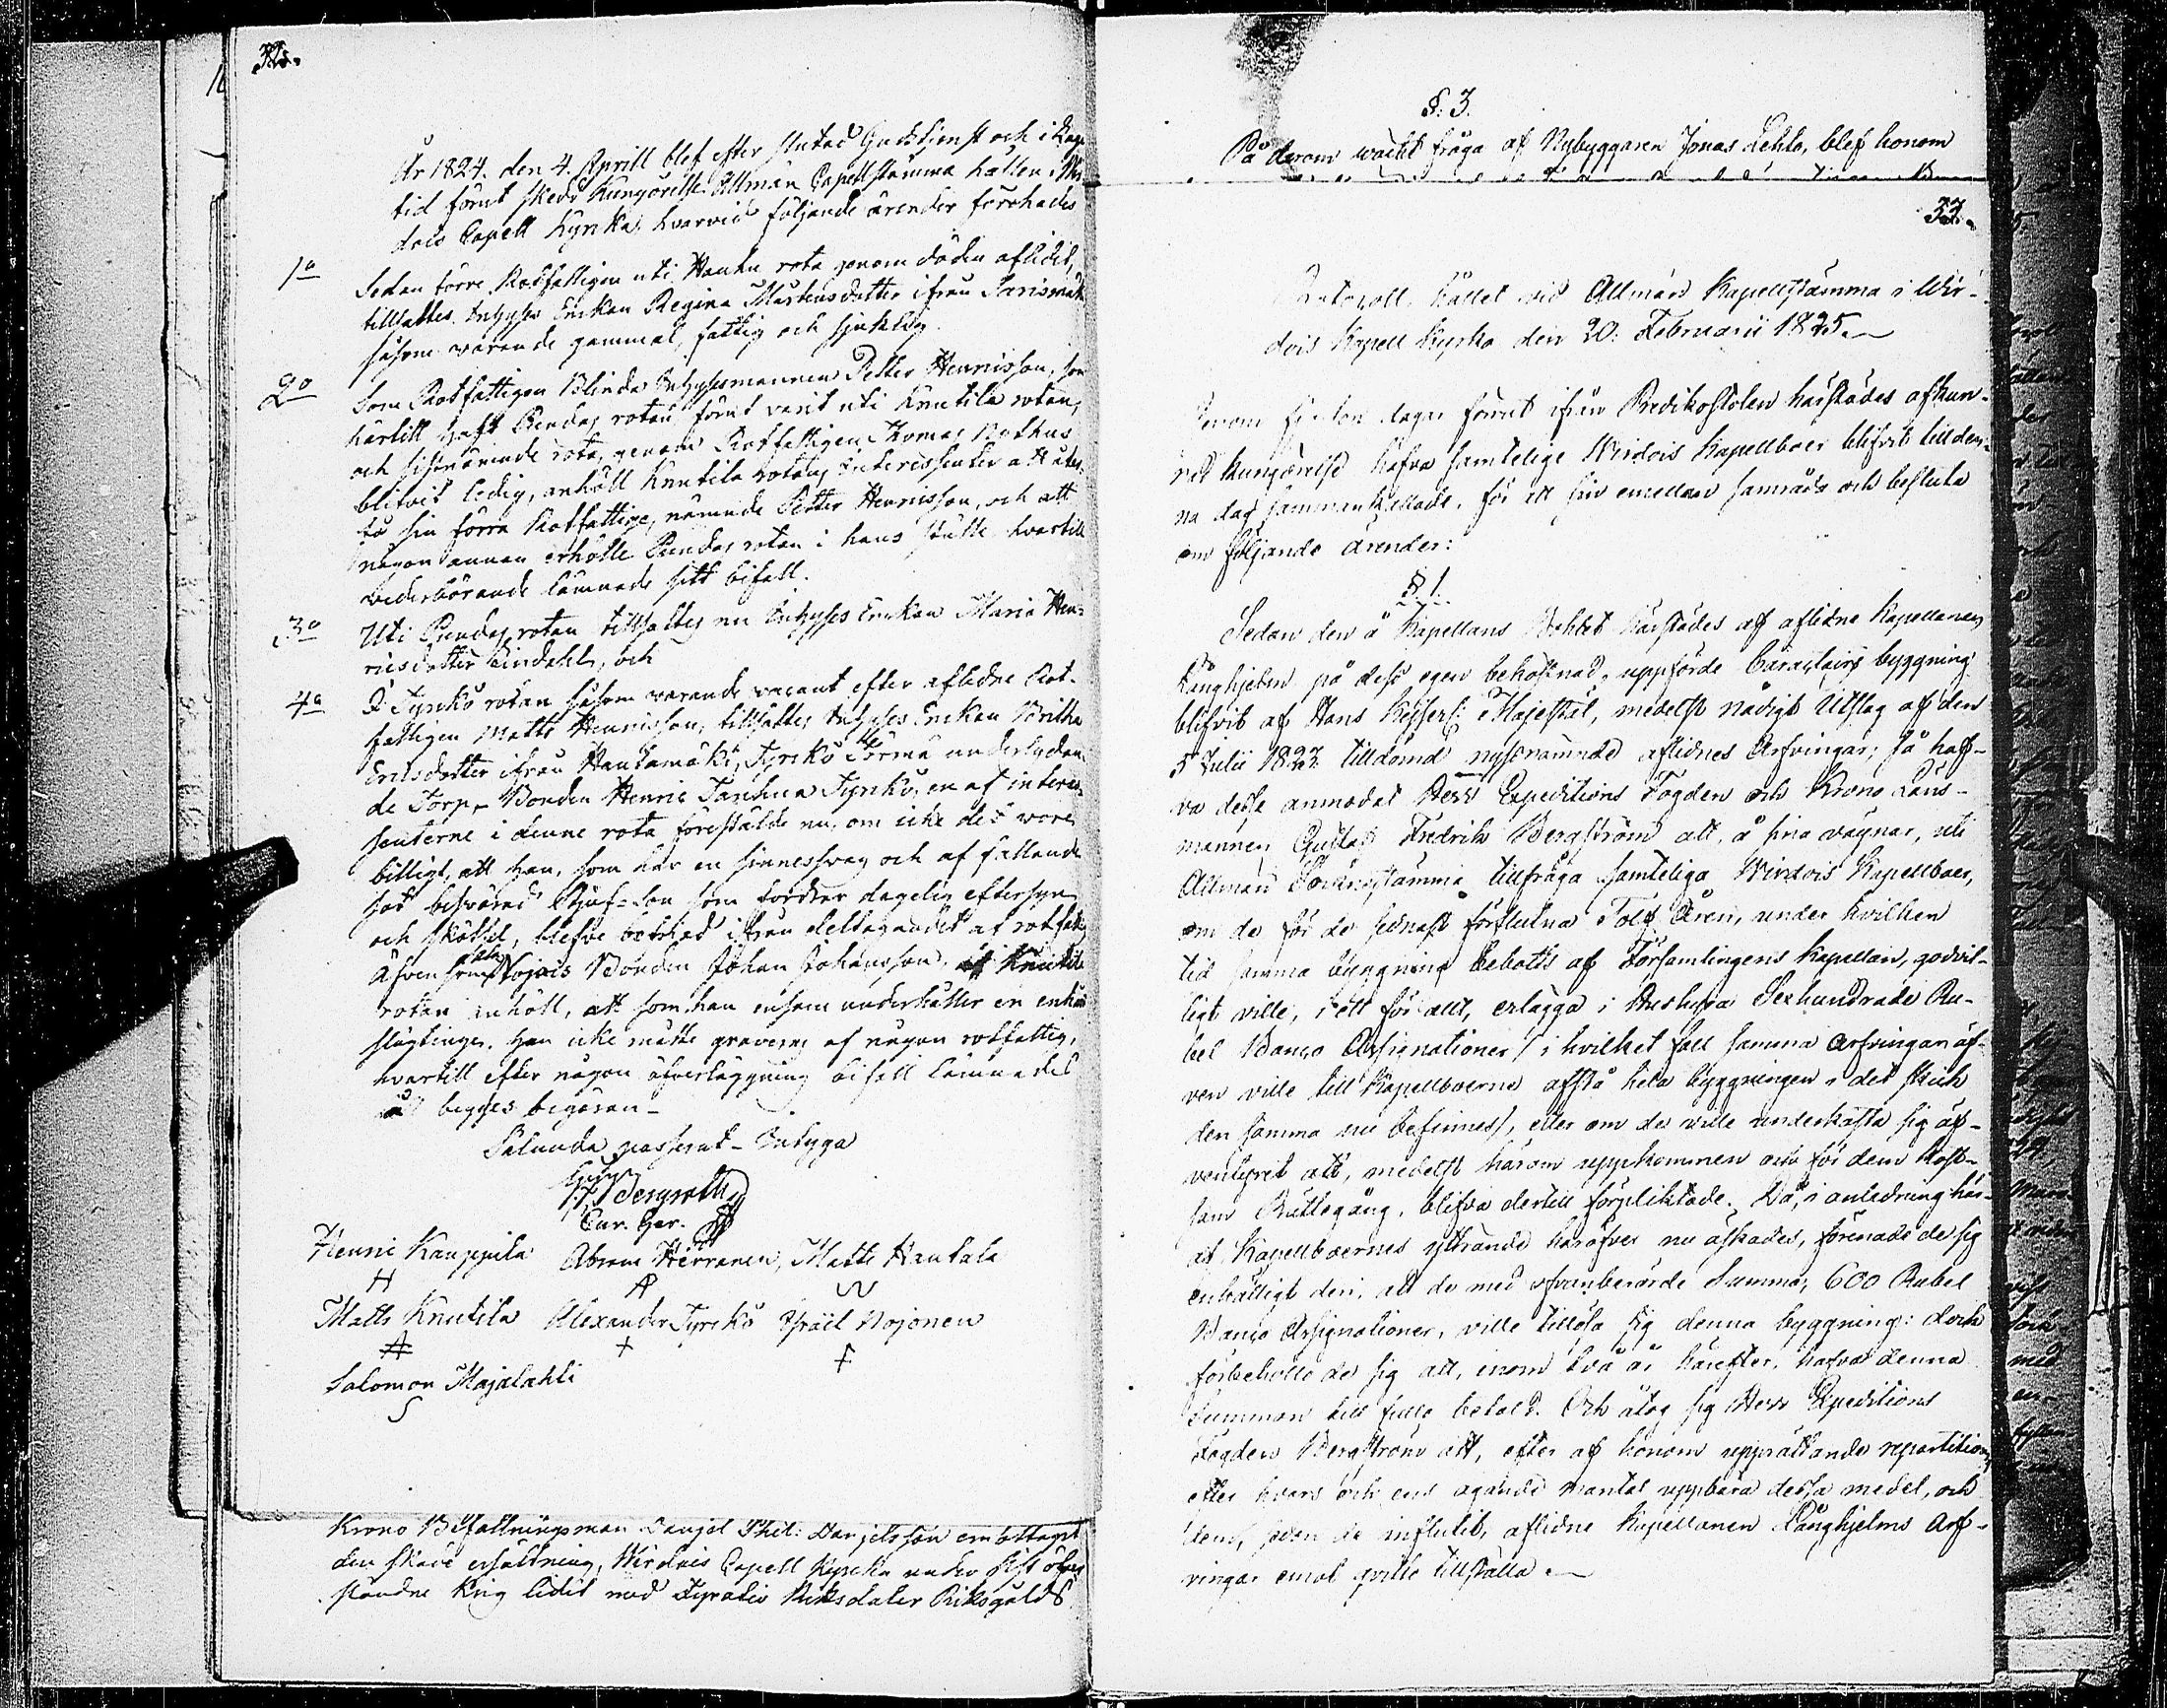 32.
År 1824. den 4. Aprill blef efter slutad Gudstjenst och i Laga
tid förut skedd Kungörelse Allmän Capellstämma hållen i Wir
dois Capell Kyrka, hvarvid följande ärender förehades
1o Sedan förre Rotfattigen uti Hauhu rota genom döden aflidit,
tillsattes Inhyses Enkan Regina Mårtensdotter ifrån Järismäk
såsom varande gammal, fattig och sjuklig.
2o Som Rotfattigen Blinda Inhysesmannen Petter Henricsson, som
härtill haft Pundas rotan förut varit uti Knutila rotan,
och sistnämnde rota, genom Rotfattigen Thomas
blifvit ledig, anhöll Knutila rotans Interessenter att åter
få sin förra Rotfattige, nämnde Petter Henricsson, och att
någon annan erhölle Pundas rotan i hans ställe hvartill
vederbörande lämnade sitt bifall.
3o Uti Pundas rotan tillsattes nu Inhyses Enkan Maria Hen-
ricsdotter Lindahl, och
4o I Tyrkö rotan såsom varande vacant efter aflidne Rot-
fattigen Matts Henricsson, tillsattes Inhyses Enkan Britha
Ericsdotter ifrån Hautamäki, Tyrkö Förmä underlydan-
de Torp. Bonden Henric Tarhia Tyrkö, en af interes-
senterne i denne rota förestälde nu, om icke det vore
billigt, att han, som har en sinnessvag och af fallande
sot besvärad Styf-Son som fordrar dagelig eftersyn
och skötsel, blefve befriad ifrån deltagandet af rotfattig
Äfven som Nojois Bonden Johan Johansson, af Knutila
rotan anhöll, att som han ensam underhåller en
slägtinge, han icke måtte graveras af någon rotfattig,
hvartill efter någon öfverläggning bifall lämnades
å begges begäran.
Sålunda passerat. Intyga
Georg
Bergroth
Cur. Ger.
Henric Kauppila Abram Herranen, Matts Hautala
Matts Knutila Alexander Tyrkö Israel Nojonen
Salomon Majalahti
S
Krono Befallningsman Danjel Phil: Danjelsson emottagit
den skade ersättning, Wirdois Capell Kyrcka under sist öfver
ståndne Krig lidit med Fyratio Riksdaler Riksgälds
§. 3.
På derom väckt fråga af Nybyggaren Jonas Lehto, blef honom
33.
Protocoll, hållet vid Allmän Kapellstämma i Wir-
dois Kapell Kyrka den 20. Februarii 1825.
Genom fjorton dagar förut ifrån Predikostolen härstädes afkun-
nad kungörelse hafva samtelige Wirdois Kapellboer blifvit till den-
na dag sammankallade, för att sin emellan samråda och besluta
om följande ärender:
§ 1.
Sedan den å Kapellans Bohlet härstädes af aflidne Kapellanen
Långhjelm på dess egen bekostnad, uppförde Caractairs byggning
blifvit af Hans Kejserl. Majestät, medelst nådigt Utslag af den
5 Julii 1823. tilldömd nyssnämnde aflidnes Arfvingar; så haf-
va desse anmodat Herr Expeditions Fogden och Krono Läns-
mannen Gustaf Fredrik Bergström att, å sina vägnar, uti
Allmän Sockenstämma tillfråga samteliga Wirdois Kapellboer,
om de för de sednast förflutna Tolf Åren, under hvilken
tid samma byggning bebotts af Församlingens Kapellan, godvil-
ligt ville, i ett för allt, erlägga i Bushyra Sexhundrade Ru-
bel Banco Assignationer / i hvilket fall samma arfvingar äf-
ven ville till Kapellboerne afstå hela byggningen i det skick
den samma nu befinnes /, eller om de ville underkasta sig äf-
ventyret att, medelst härom uppkommen och för dem kost-
sam Rättegång, blifva dertill förpliktade. Då, i anledning här-
af, Kapellboernes yttrande häröfver nu äskades, förenade de sig
enhälligt deri, att de med ofvanberörde Summa, 600 Rubel
Banco Assignationer, ville tillösa sig denna byggning: dock
förbehöllo de sig att, inom två år härefter, hafva denna
Summan till fullo betald. Och åtog sig Herr Expeditions
Fogden Bergström att, efter af honom upprättande repartition,
efter hvars och ens ägande mantal uppbära dessa medel, och
dem, sedan de influtit, aflidne Kapellanen Långhjelms Arf-
vingar emot qvitto tillställa.